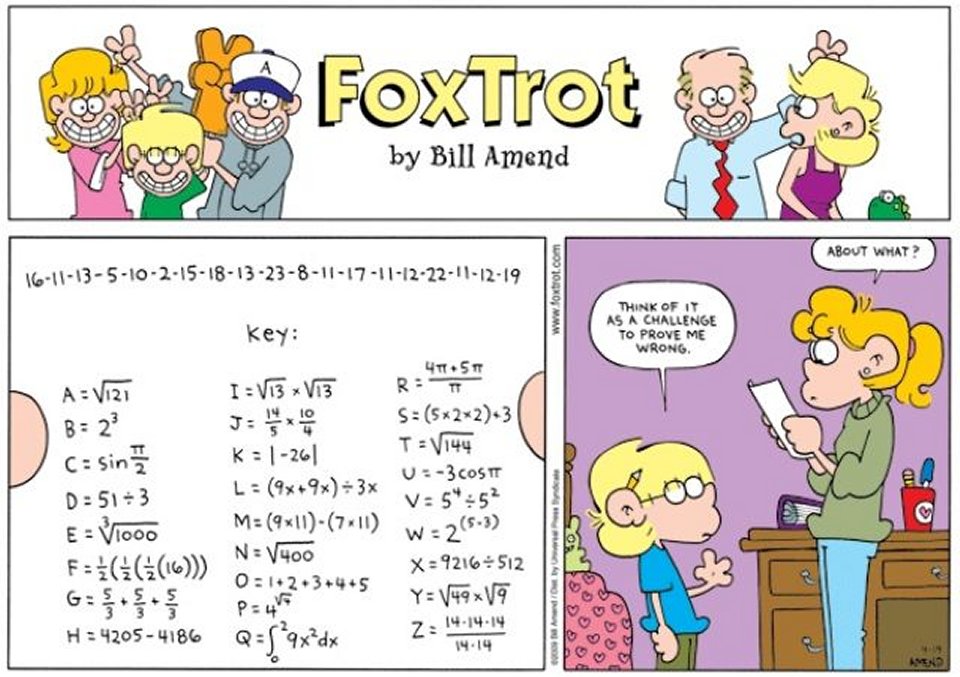 A
FoxTrot
by Bill Amend
16-11-13-5-10-2-15-18-13-23-8-11-17-11-12-22-11-12-19
key:
A = √121
B = 2³
C = sin π/2
D = 51 ÷ 3
E = ∛1000
F = ½(½(½(16)))
G = 5/3 + 5/3 + 5/3
H = 4205 - 4186
I = √13 × √13
J = 14/5 × 10/4
K = |-26|
L = (9x+9x) ÷ 3x
M = (9×11)-(7×11)
N = √400
O = 1+2+3+4+5
P = 4^√9
Q = ∫₀² 9x²dx
R = 4π+5π/π
S = (5×2×2)+3
T = √144
U = -3cosπ
V = 5⁴ ÷ 5²
W = 2^(5-3)
X = 9216 ÷ 512
Y = √49 × √9
Z = 14·14·14/14·14
www.foxtrot.com
©2009 Bill Amend / Dist. by Universal Press Syndicate
THINK OF IT
AS A CHALLENGE
TO PROVE ME
WRONG.
ABOUT WHAT?
4-19
AMEND